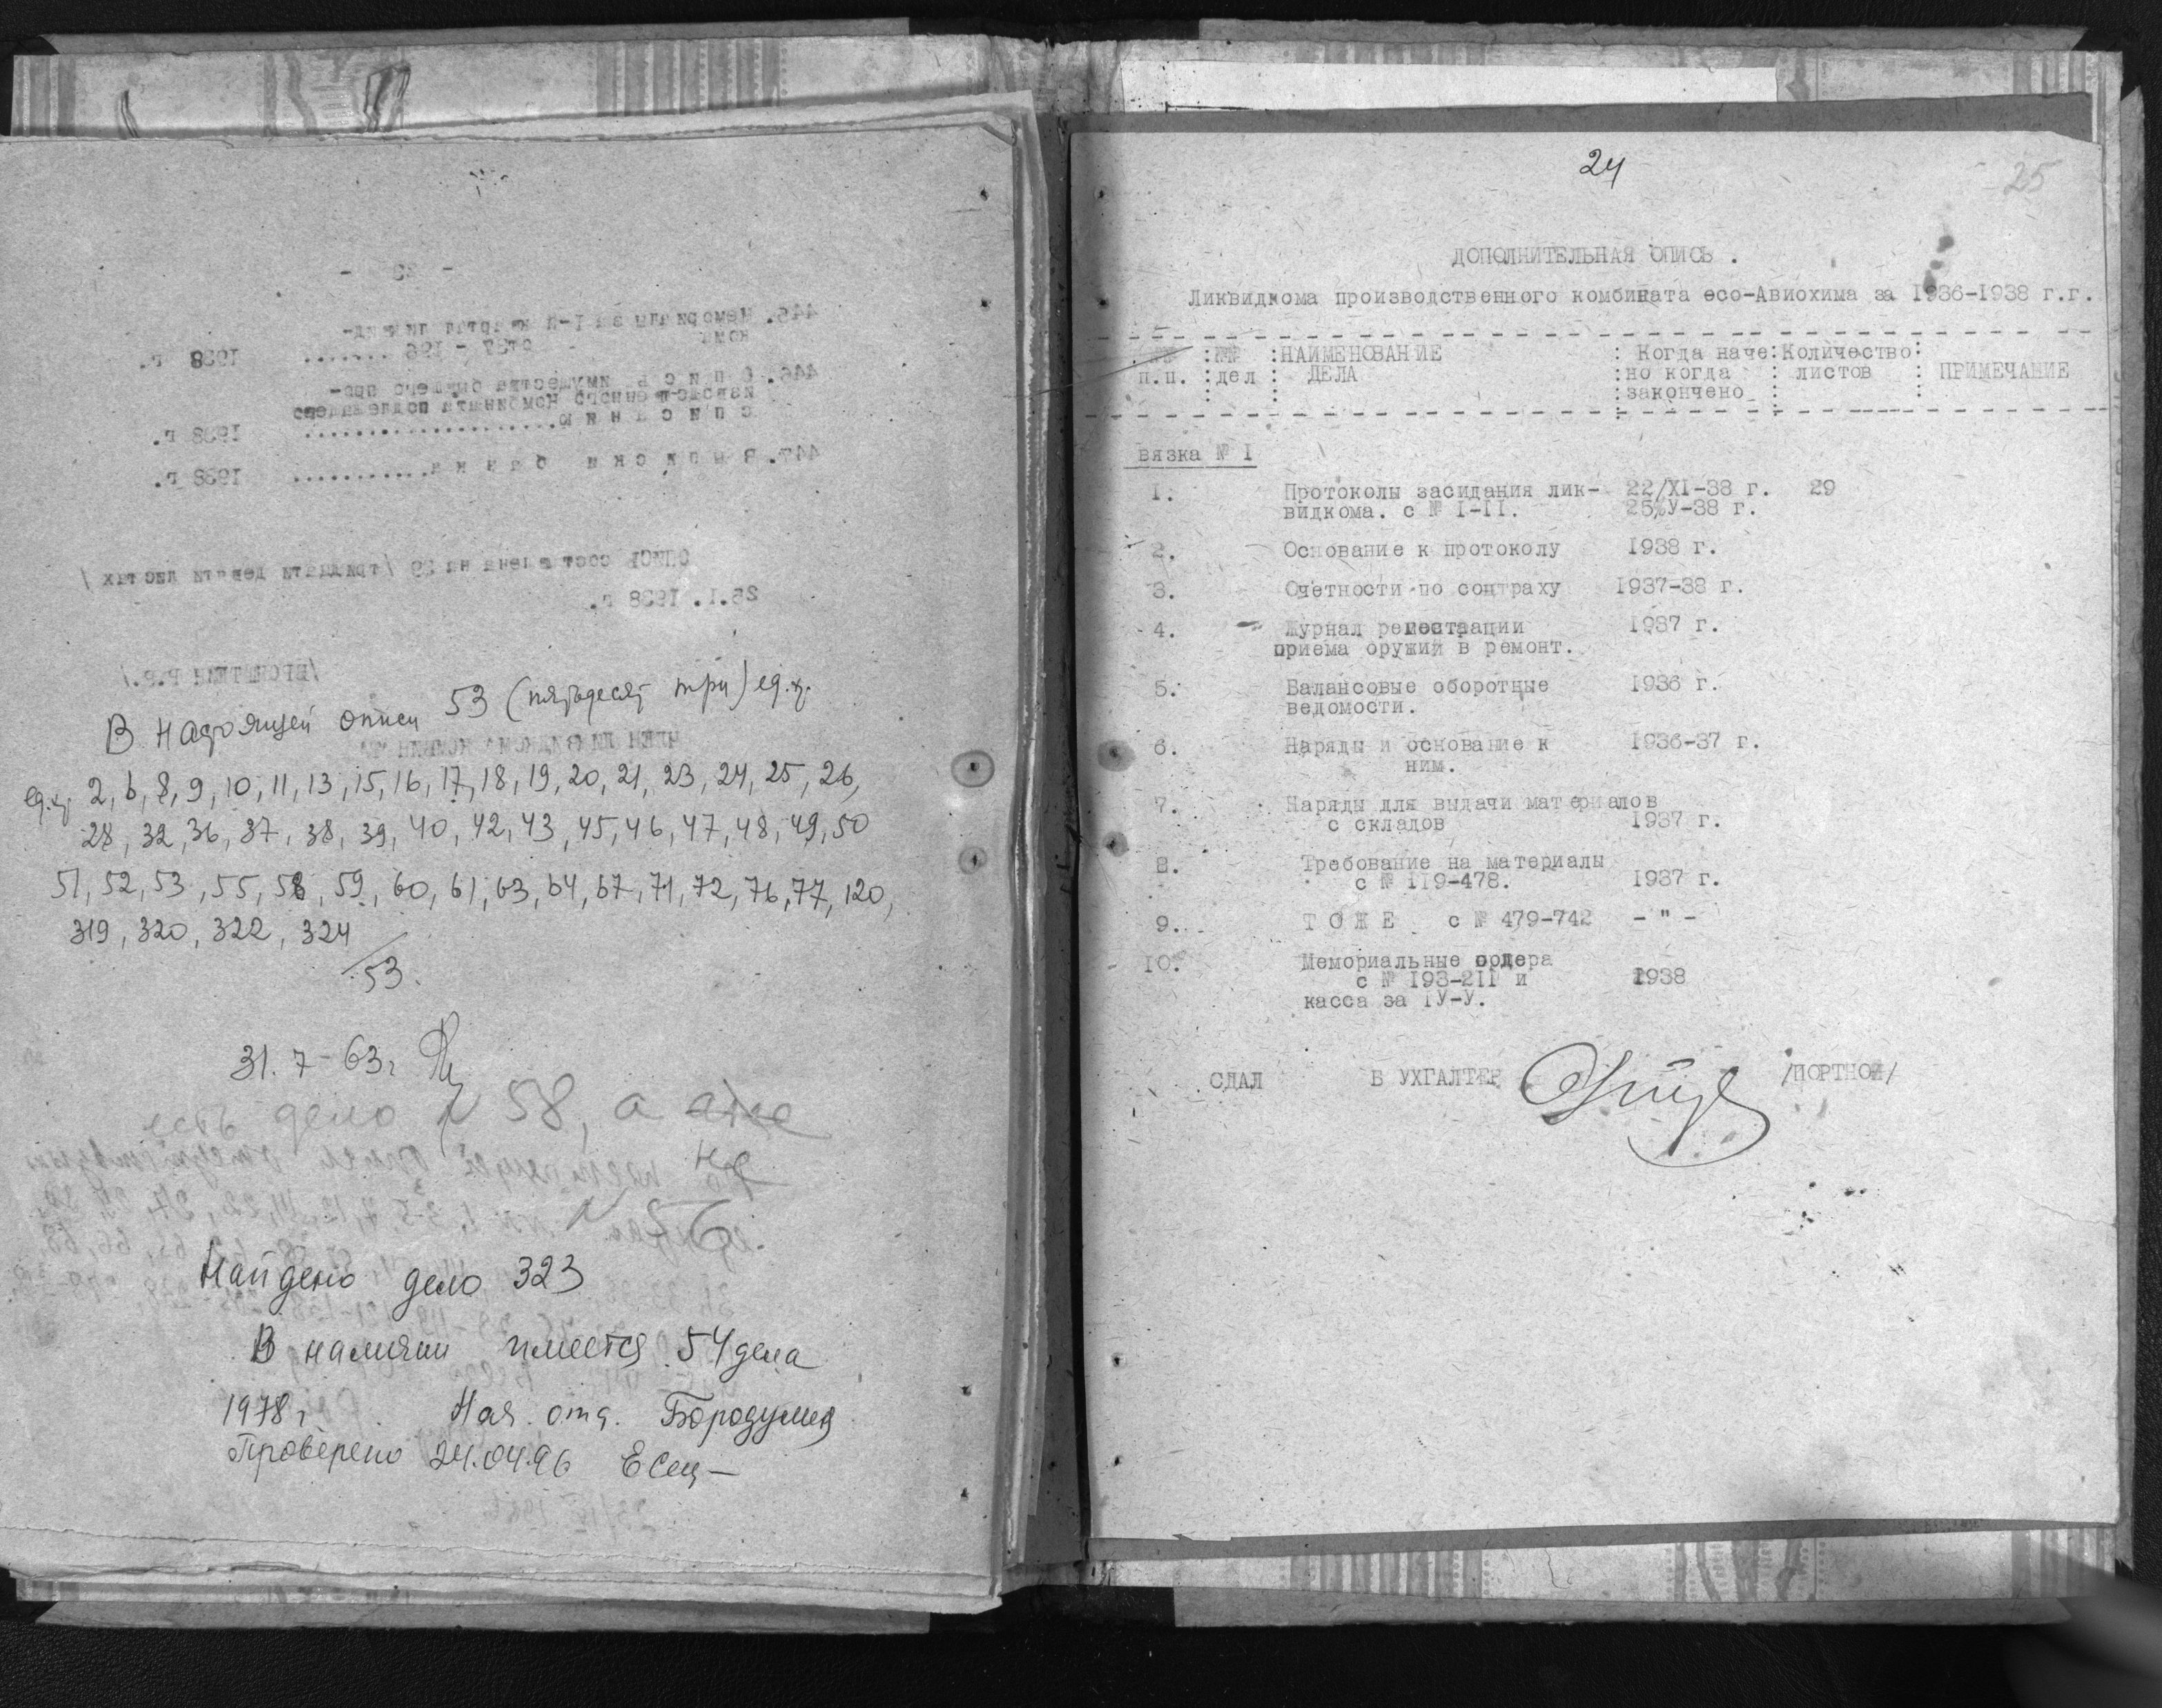 В настоящей описи 53 (пятьдесят три) ед.х.
ед.х. 2, 6, 8, 9, 10, 11, 13, 15, 16, 17, 18, 19, 20, 21, 23, 24, 25, 26,
28, 32, 36, 37, 38, 39, 40, 42, 43, 45, 46, 47, 48, 49, 50
51, 52, 53, 55, 58, 59, 60, 61, 63, 64, 67, 71, 72, 76, 77, 120,
319, 320, 322, 324
53.
31.7-63г
есть дело N 58, а
не
N 56
Найдено дело 323
В наличии имеется 54 дела
1978 г. Нач. отд.
Проверено 24.04.96
24
25
ДОПОЛНИТЕЛЬНАЯ ОПИСЬ .
Ликвидкома производственного комбината осо-Авиохима за 1936-1938 г.г.
№№ : №№ : НАИМЕНОВАНИЕ : Когда наче : Количество :
п.п. : дел : ДЕЛА : но когда : листов : ПРИМЕЧАНИЕ
: закончено :
вязка № I
1. Протоколы засидания лик- 22/XI-38 г. 29
видкома. с № I-II. 25%У-38 г.
2. Основание к протоколу 1938 г.
3. Очетности по соцтраху 1937-38 г.
4. Журнал 1937 г.
приема оружий в ремонт.
5. Балансовые оборотные 1936 г.
ведомости.
6. Наряды и основание к 1936-37 г.
ним.
7. Наряды для выдачи материалов
с складов 1937 г.
8. Требование на материалы
с № 119-478. 1937 г.
9. Т О Ж Е с № 479-742 - " -
10. Мемориальные ордера
с № 193-211 и 1938
касса за IУ-У.
СДАЛ Б УХГАЛТЕР /ПОРТНОЙ/